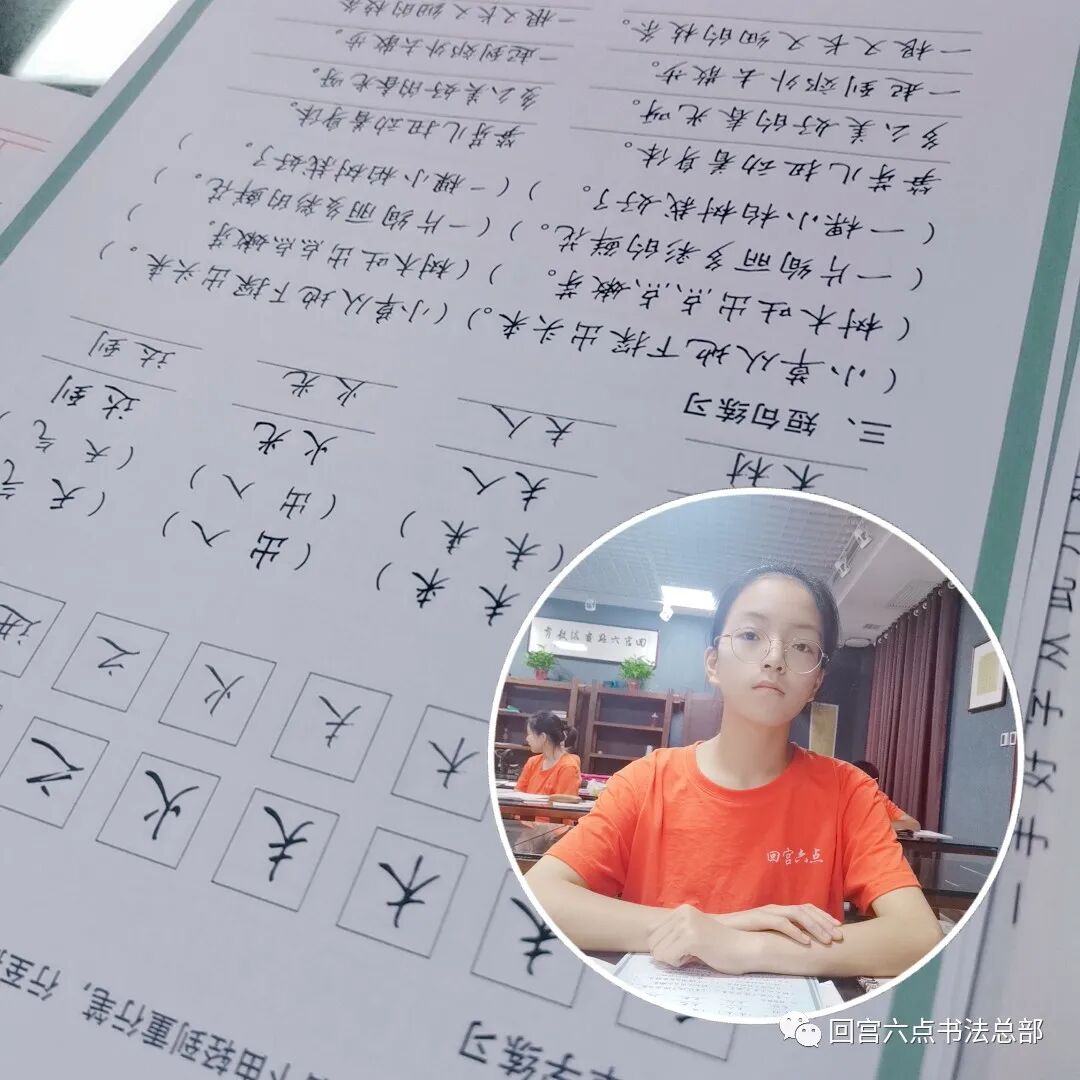 下由轻到重行笔，行至
字练习
木 夫 火 之
木 夫 火 之 进
未来） （出入） （天气
（未来） （出入） （天气
夫人 火光 达到
木材 夫人 火光 达到
三、短句练习
（小草从地下探出头来。）（小草从地下探出头来。）
（树木吐出点点嫩芽。）（树木吐出点点嫩芽。）
（一片绚丽多彩的鲜花。）（一片绚丽多彩的鲜花。）
（一棵小柏树栽好了。）（一棵小柏树栽好了。）
笋芽儿扭动着身体。 笋芽儿扭动着身体。
多么美好的春光呀。 多么美好的春光呀。
一起到郊外去散步。 一起到郊外去散步。
一根又长又细的枝条。 一根又长又细的枝条
一手好字从此开
回宫六点书法教育
回宫六点
回宫六点书法总部